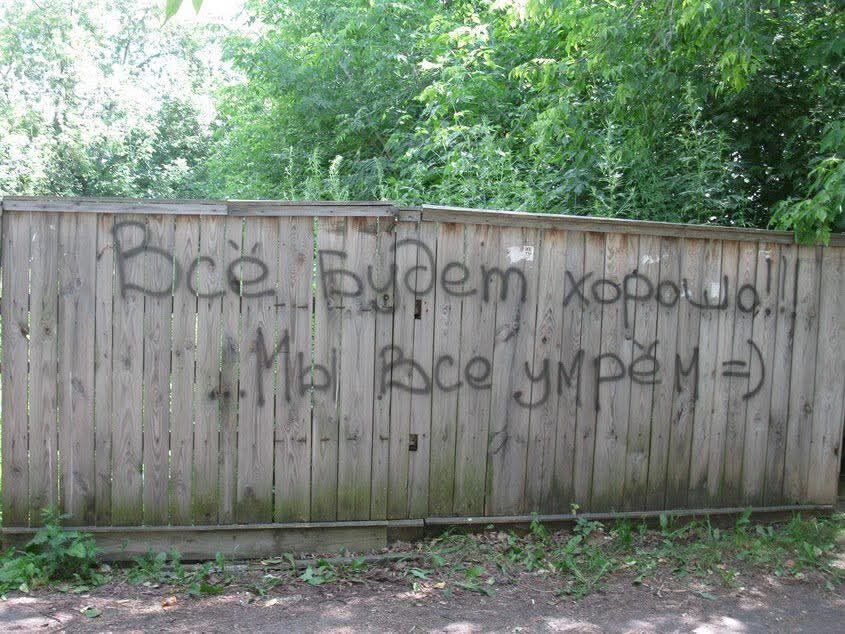 Всё Будет хорошо!!!
..Мы все умрём =)